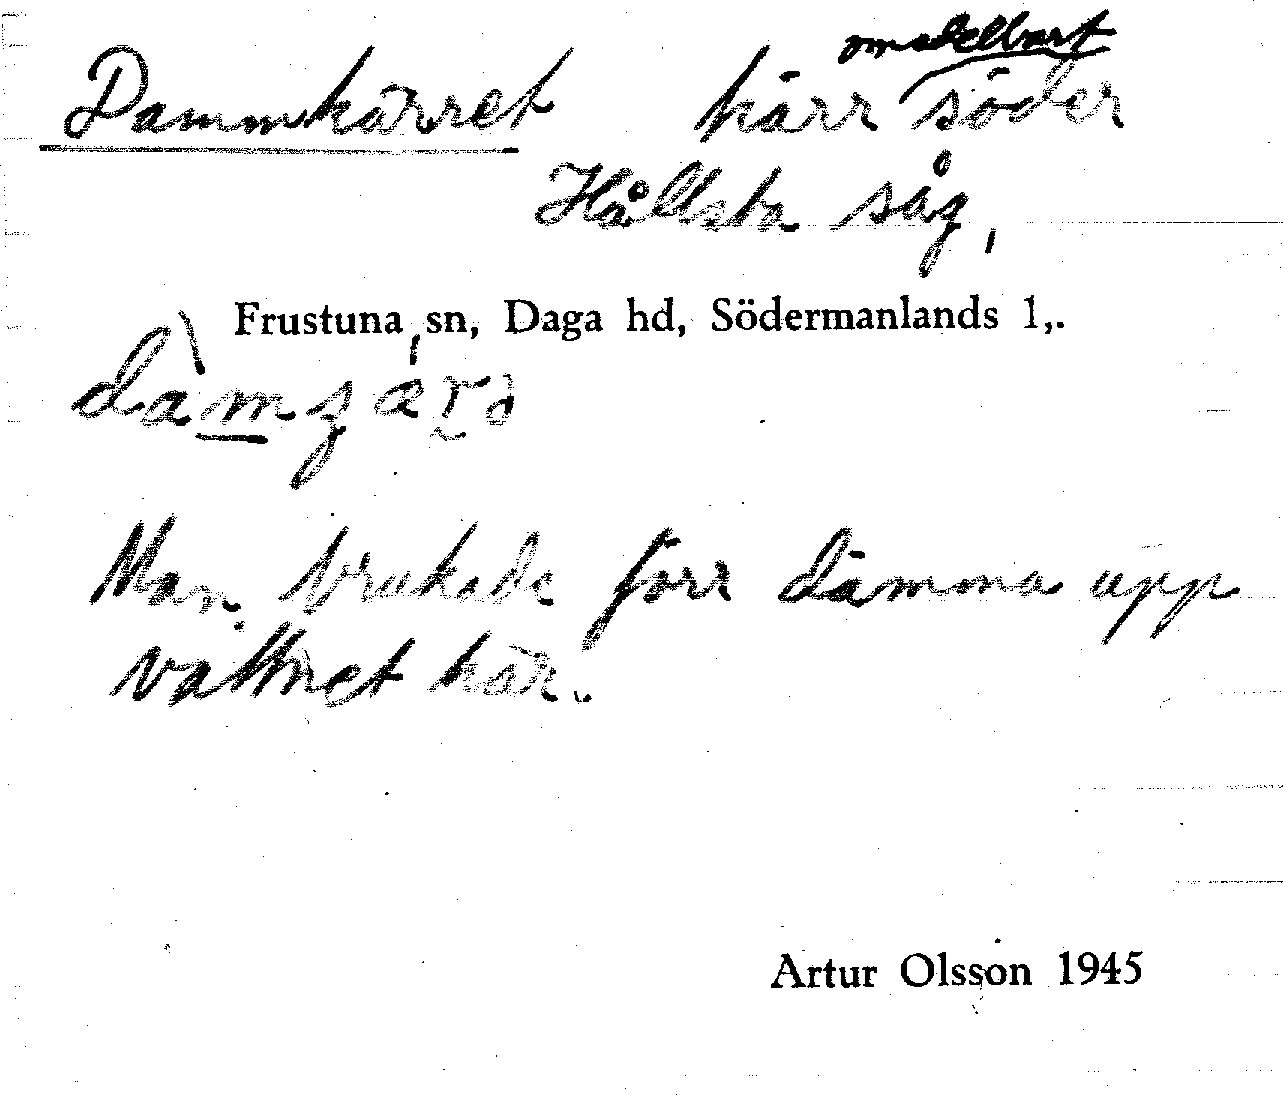 Dammkärret kärr omedelbart söder
Hållsta såg,
Frustuna sn, Daga hd, Södermanlands l,.
Man brukade förr dämma upp
vattnet här.
Artur Olsson 1945